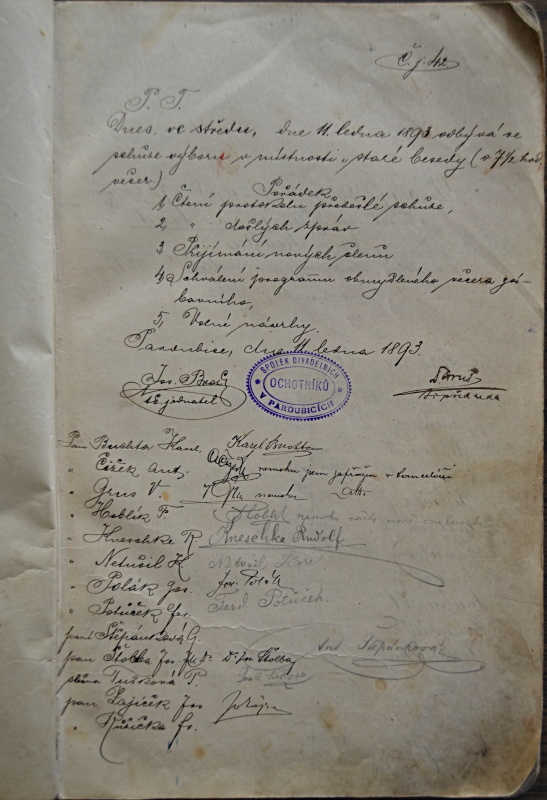 Č. j. 42
P. T.
Dnes, ve středu, dne 11. ledna 1893 odbývá se
schůze výboru v místnosti „staré besedy" (o 7½ hod.
večer.)
Pořádek
1, Čtení protokolu předešlé schůze,
2, " došlých zpráv
3, Přijímání nových členů
4, Schválení programu obmýšleného večera zá-
bavního,
5, Volné návrhy.
Pardubice, dne 11. ledna 1893.
SPOLEK DIVADELNÍCH
OCHOTNÍKŮ
V PARDUBICÍCH
Jos.
t. č. jednatel
Pan Buchta Karel, Karel Buchta
" Čížek Ant. nemohu jsem v kanceláři
" Grus V. nemohu
" Hoblík F. nemohu
" Kneschke R Kneschke Rudolf
" Netušil K Netušil Karel
" Polák Jos. Jos. Polák
" Potůček Fer. Ferd. Potůček.
paní Štěpánková G. Ant. Štěpánková
pan Štolba Jos. JUDr. Dr. Jos. Štolba
slečna Tušková T.
pan Zajíček Jos
" Růžička Fr.